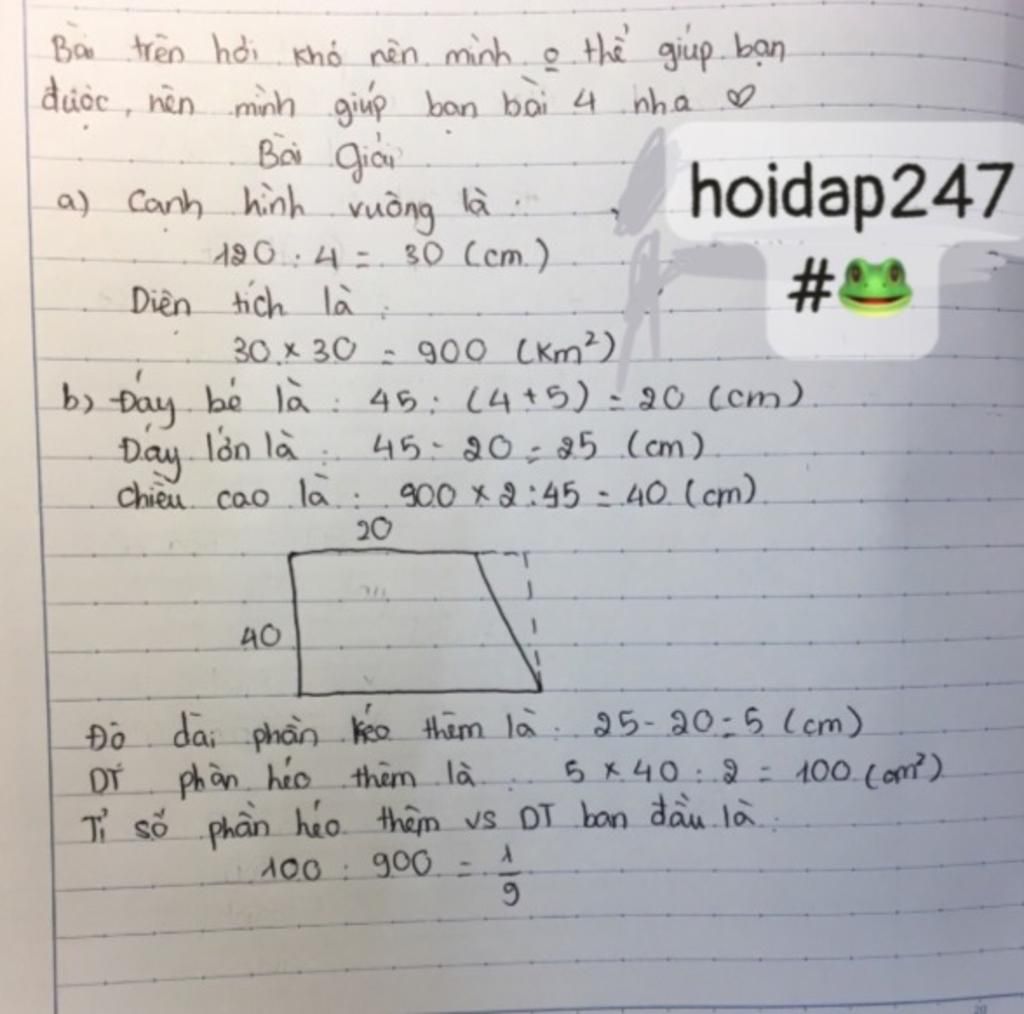 Bài trên hơi khó nên mình o thể giúp bạn
được, nên mình giúp bạn bài 4 nha ♡
Bài Giải
hoidap247
#🐸
a) Cạnh hình vuông là :
120 : 4 = 30 (cm)
Diện tích là :
30 × 30 = 900 (Km²)
b) Đáy bé là : 45 : (4+5) = 20 (cm)
Đáy lớn là : 45 - 20 = 25 (cm)
Chiều cao là : 900 × 2 : 45 = 40 (cm)
20
40
Độ dài phần kéo thêm là : 25 - 20 = 5 (cm)
DT phần héo thêm là : 5 × 40 : 2 = 100 (cm²)
Tỉ số phần héo thêm vs DT ban đầu là :
100 : 900 = 1/9